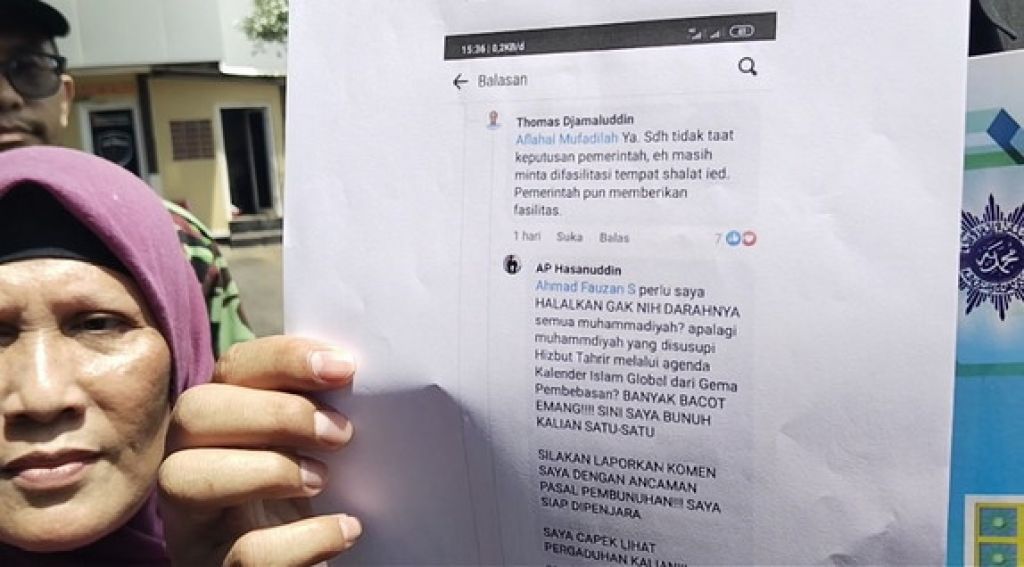 15:36 | 0,2KB/d
Balasan
Thomas Djamaluddin
Aflahal Mufadilah Ya. Sdh tidak taat
keputusan pemerintah, eh masih
minta difasilitasi tempat shalat ied.
Pemerintah pun memberikan
fasilitas.
1 hari Suka Balas 7
AP Hasanuddin
Ahmad Fauzan S perlu saya
HALALKAN GAK NIH DARAHNYA
semua muhammadiyah? apalagi
muhammdiyah yang disusupi
Hizbut Tahrir melalui agenda
Kalender Islam Global dari Gema
Pembebasan? BANYAK BACOT
EMANG!!!! SINI SAYA BUNUH
KALIAN SATU-SATU
SILAKAN LAPORKAN KOMEN
SAYA DENGAN ANCAMAN
PASAL PEMBUNUHAN!!! SAYA
SIAP DIPENJARA
SAYA CAPEK LIHAT
PERGADUHAN KALIAN!!!